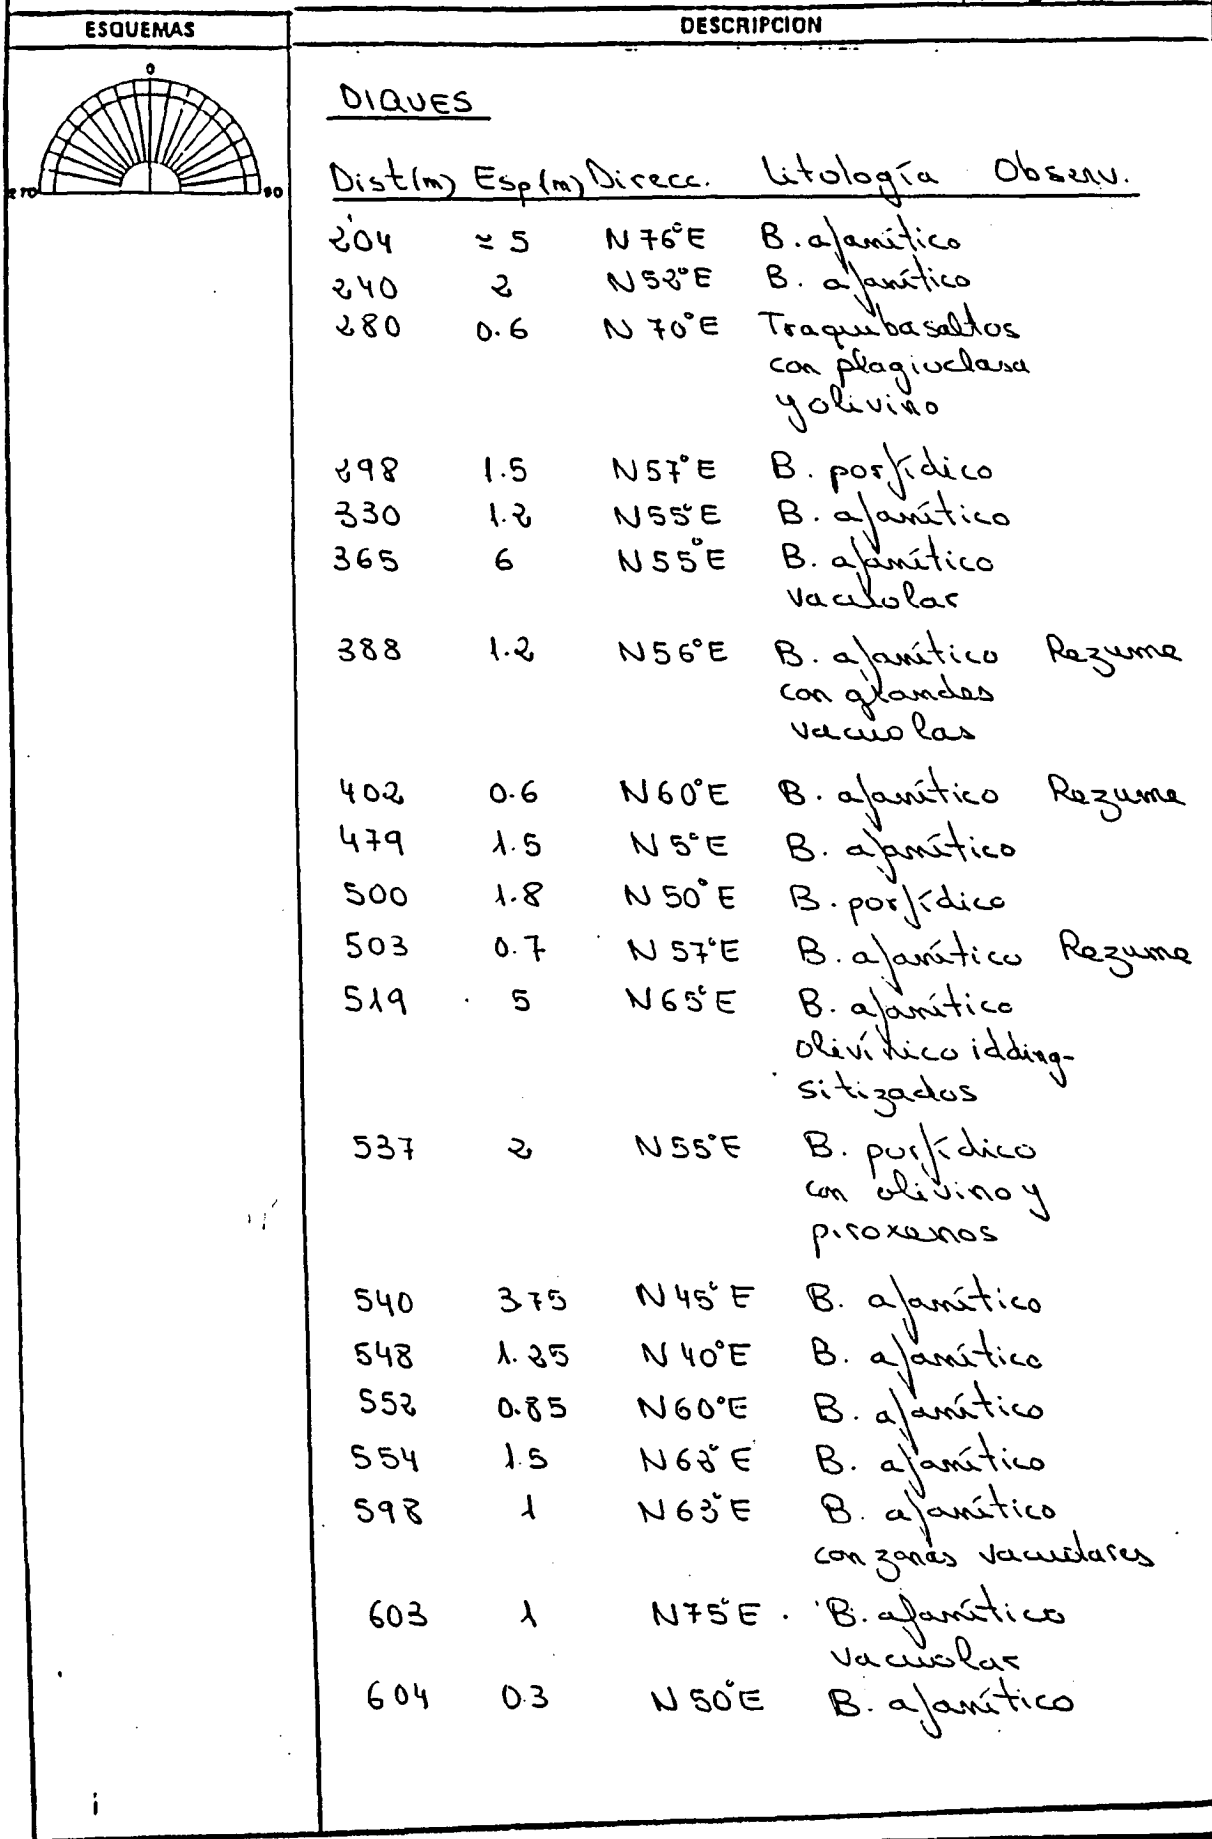 ESQUEMAS
DESCRIPCION
0
270
90
DIQUES
Dist(m) Esp(m) Direcc. Litología Observ.
204 ≈ 5 N 76°E B. afanítico
240 2 N 52°E B. afanítico
280 0.6 N 70°E Traquibasaltos
con plagioclasa
y olivino
298 1.5 N 57°E B. porfídico
330 1.2 N 55°E B. afanítico
365 6 N 55°E B. afanítico
vacuolar
388 1.2 N 56°E B. afanítico Rezume
con grandes
vacuolas
402 0.6 N 60°E B. afanítico Rezume
479 1.5 N 5°E B. afanítico
500 1.8 N 50°E B. porfídico
503 0.7 N 57°E B. afanítico Rezume
519 5 N 65°E B. afanítico
olivínico idding-
sitizados
537 2 N 55°E B. porfídico
con olivino y
piroxenos
540 3.75 N 45°E B. afanítico
548 1.25 N 40°E B. afanítico
552 0.85 N 60°E B. afanítico
554 1.5 B. afanítico
598 1 N 63°E B. afanítico
con zonas vacuolares
603 1 N 75°E B. afanítico
vacuolar
604 0.3 N 50°E B. afanítico